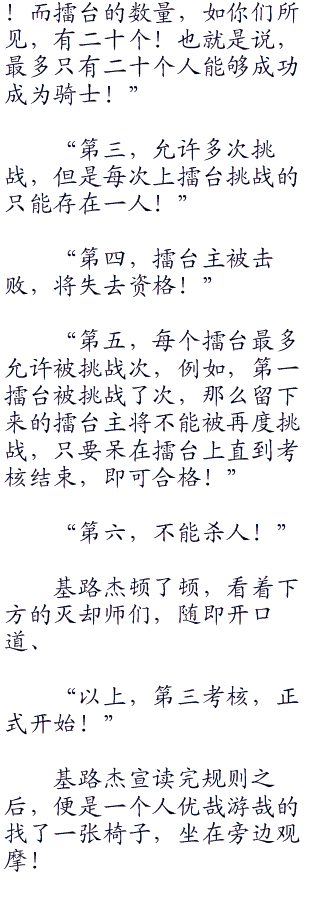 ！而擂台的数量，如你们所
见，有二十个！也就是说，
最多只有二十个人能够成功
成为骑士！”
“第三，允许多次挑
战，但是每次上擂台挑战的
只能存在一人！”
“第四，擂台主被击
败，将失去资格！”
“第五，每个擂台最多
允许被挑战次，例如，第一
擂台被挑战了次，那么留下
来的擂台主将不能被再度挑
战，只要呆在擂台上直到考
核结束，即可合格！”
“第六，不能杀人！”
基路杰顿了顿，看着下
方的灭却师们，随即开口
道、
“以上，第三考核，正
式开始！”
基路杰宣读完规则之
后，便是一个人优哉游哉的
找了一张椅子，坐在旁边观
摩！